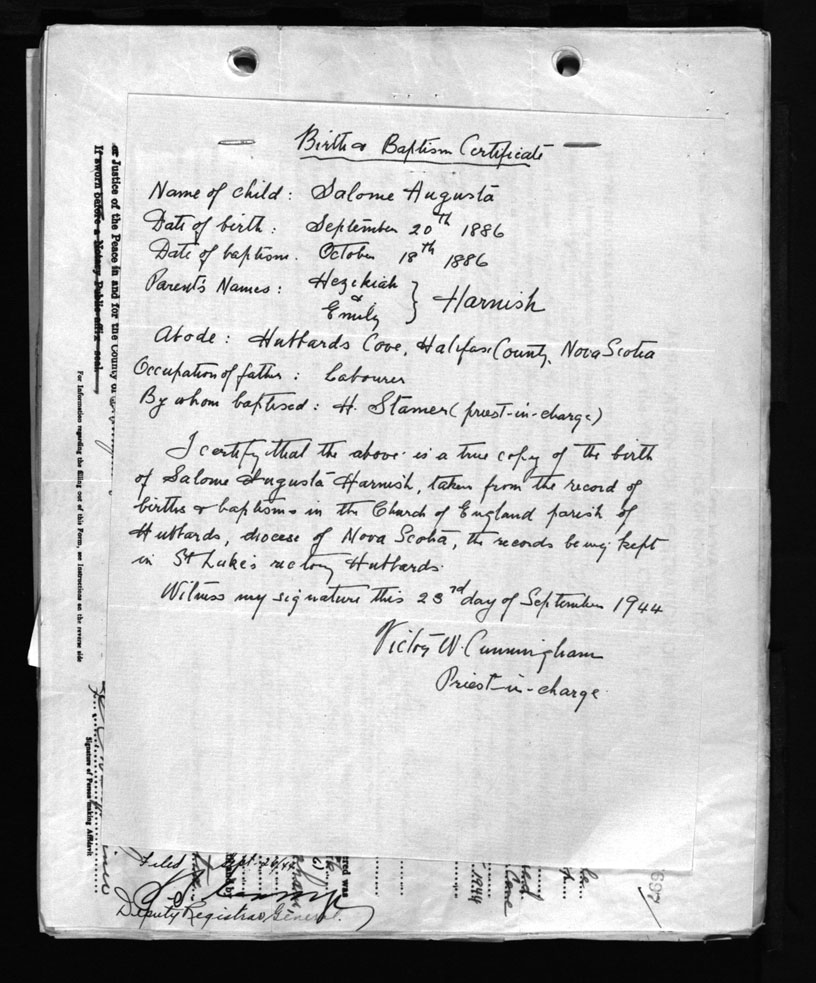 Birth & Baptism Certificate
Name of child: Salome Augusta
Date of birth: September 20th 1886
Date of baptism. October 18th 1886
Parent's Names: Hezekiah
&
Emily } Harnish
Abode: Hubbards Cove, Halifax County, Nova Scotia
Occupation of father: Labourer
By whom baptised: H. Stamer (priest-in-charge)
I certify that the above is a true copy of the birth
of Salome Augusta Harnish, taken from the record of
births & baptisms in the Church of England parish of
Hubbards, diocese of Nova Scotia, the records being kept
in St Luke's rectory Hubbards.
Witness my signature this 23rd day of September 1944
Victor W. Cunningham
Priest-in-charge
or Justice of the Peace in and for the County of
If sworn before a Notary Public affix seal
For information regarding the filling out of this Form, see instructions on the reverse side
Signature of Person making Affidavit
Filed Sept 26/44
Deputy Registrar General.
ered was
1944
Cove
697